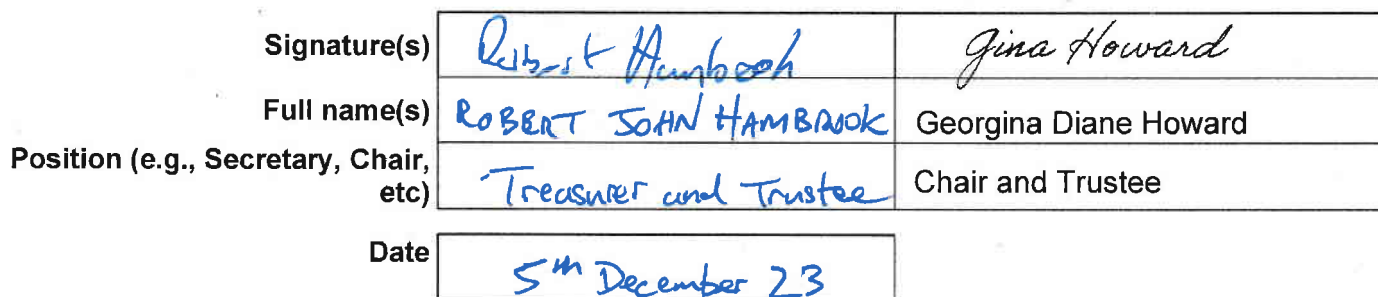 Signature(s) Robert Hambrook Gina Howard
Full name(s) ROBERT JOHN HAMBROOK Georgina Diane Howard
Position (e.g., Secretary, Chair, etc) Treasurer and Trustee Chair and Trustee
Date 5th December 23